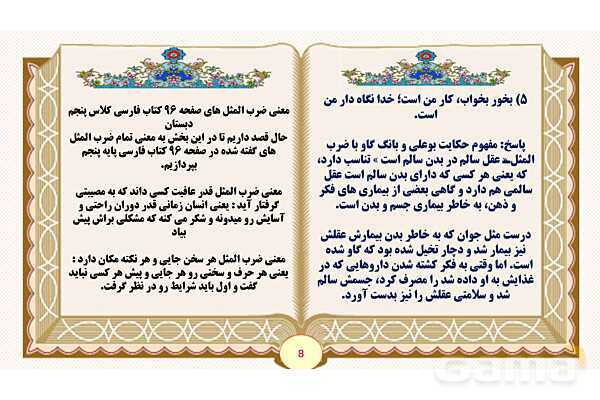 ۵) بخور بخواب، کار من است؛ خدا نگاه دار من
است.
پاسخ: مفهوم حکایت بوعلی و بانگ گاو با ضرب
المثل« عقل سالم در بدن سالم است » تناسب دارد،
که یعنی هر کسی که دارای بدن سالم است عقل
سالمی هم دارد و گاهی بعضی از بیماری های فکر
و ذهن، به خاطر بیماری جسم و بدن است.
درست مثل جوان که به خاطر بدن بیمارش عقلش
نیز بیمار شد و دچار تخیل شده بود که گاو شده
است. اما وقتی به فکر کشته شدن داروهایی که در
غذایش به او داده شد را مصرف کرد، جسمش سالم
شد و سلامتی عقلش را نیز بدست آورد.
معنی ضرب المثل های صفحه ۹۶ کتاب فارسی کلاس پنجم
دبستان
حال قصد داریم تا در این بخش به معنی تمام ضرب المثل
های گفته شده در صفحه ۹۶ کتاب فارسی پایه پنجم
بپردازیم.
معنی ضرب المثل قدر عافیت کسی داند که به مصیبتی
گرفتار آید : یعنی انسان زمانی قدر دوران راحتی و
آسایش رو میدونه و شکر می کنه که مشکلی براش پیش
بیاد
معنی ضرب المثل هر سخن جایی و هر نکته مکان دارد :
یعنی هر حرف و سخنی رو هر جایی و پیش هر کسی نباید
گفت و اول باید شرایط رو در نظر گرفت.
8
Gama